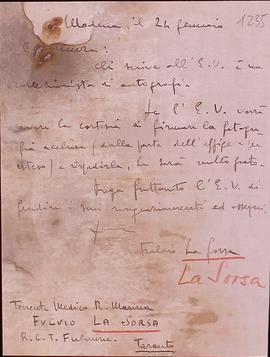 Modena, il 24 gennaio
1235
Eccellenza:
chi scrive all'E.V. è un
collezionista di autografi.
Se l'E.V. vorrà
avere la cortesia di firmare la fotogra-
fia acclusa (dalla parte dell'effige e per
esteso) e rispedirla, le sarà molto grato.
Prego frattanto l'E.V. di
gradire i suoi ringraziamenti ed ossequi
Fulvio La Sorsa
La Sorsa
Tenente Medico R. Marina
FULVIO LA SORSA
R.C.T. Fulmine.
Taranto